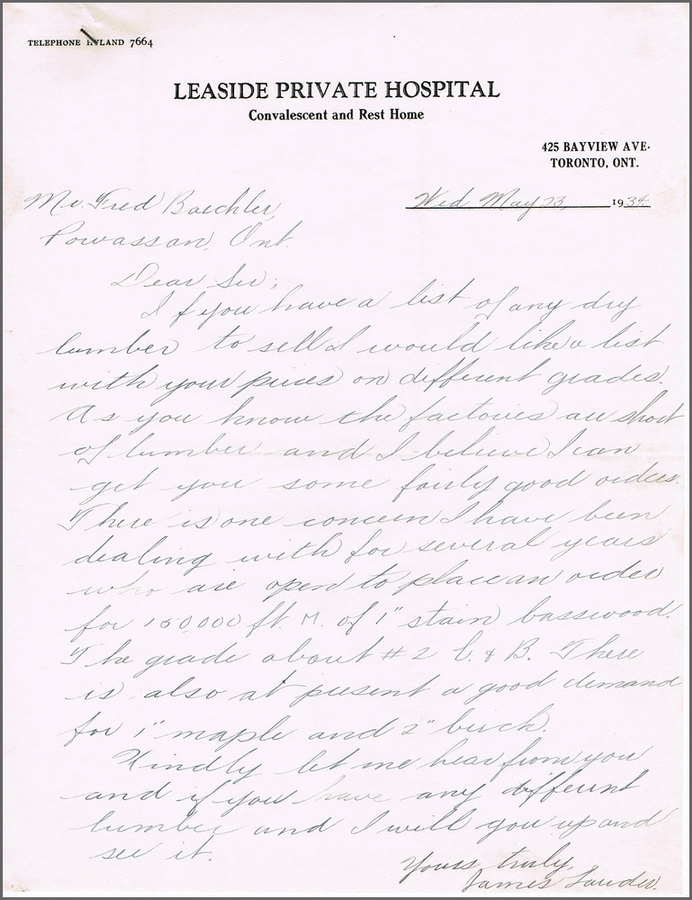 TELEPHONE HYLAND 7664
LEASIDE PRIVATE HOSPITAL
Convalescent and Rest Home
425 BAYVIEW AVE.
TORONTO, ONT.
Mr. Fred Baechler,
Wed May 23, 1934
Powassan, Ont.
Dear Sir;
If you have a list of any dry
lumber to sell I would like a list
with your prices on different grades.
As you know the factories are short
of lumber and I believe I can
get you some fairly good orders.
There is one concern I have been
dealing with for several years
who are open to place an order
for 150,000 ft. M. of 1" stain basswood.
The grade about #2 C. & B. There
is also at present a good demand
for 1" maple and 2" birch.
Kindly let me hear from you
and if you have any different
lumber and I will go up and
see it.
Yours truly,
James Lauder.